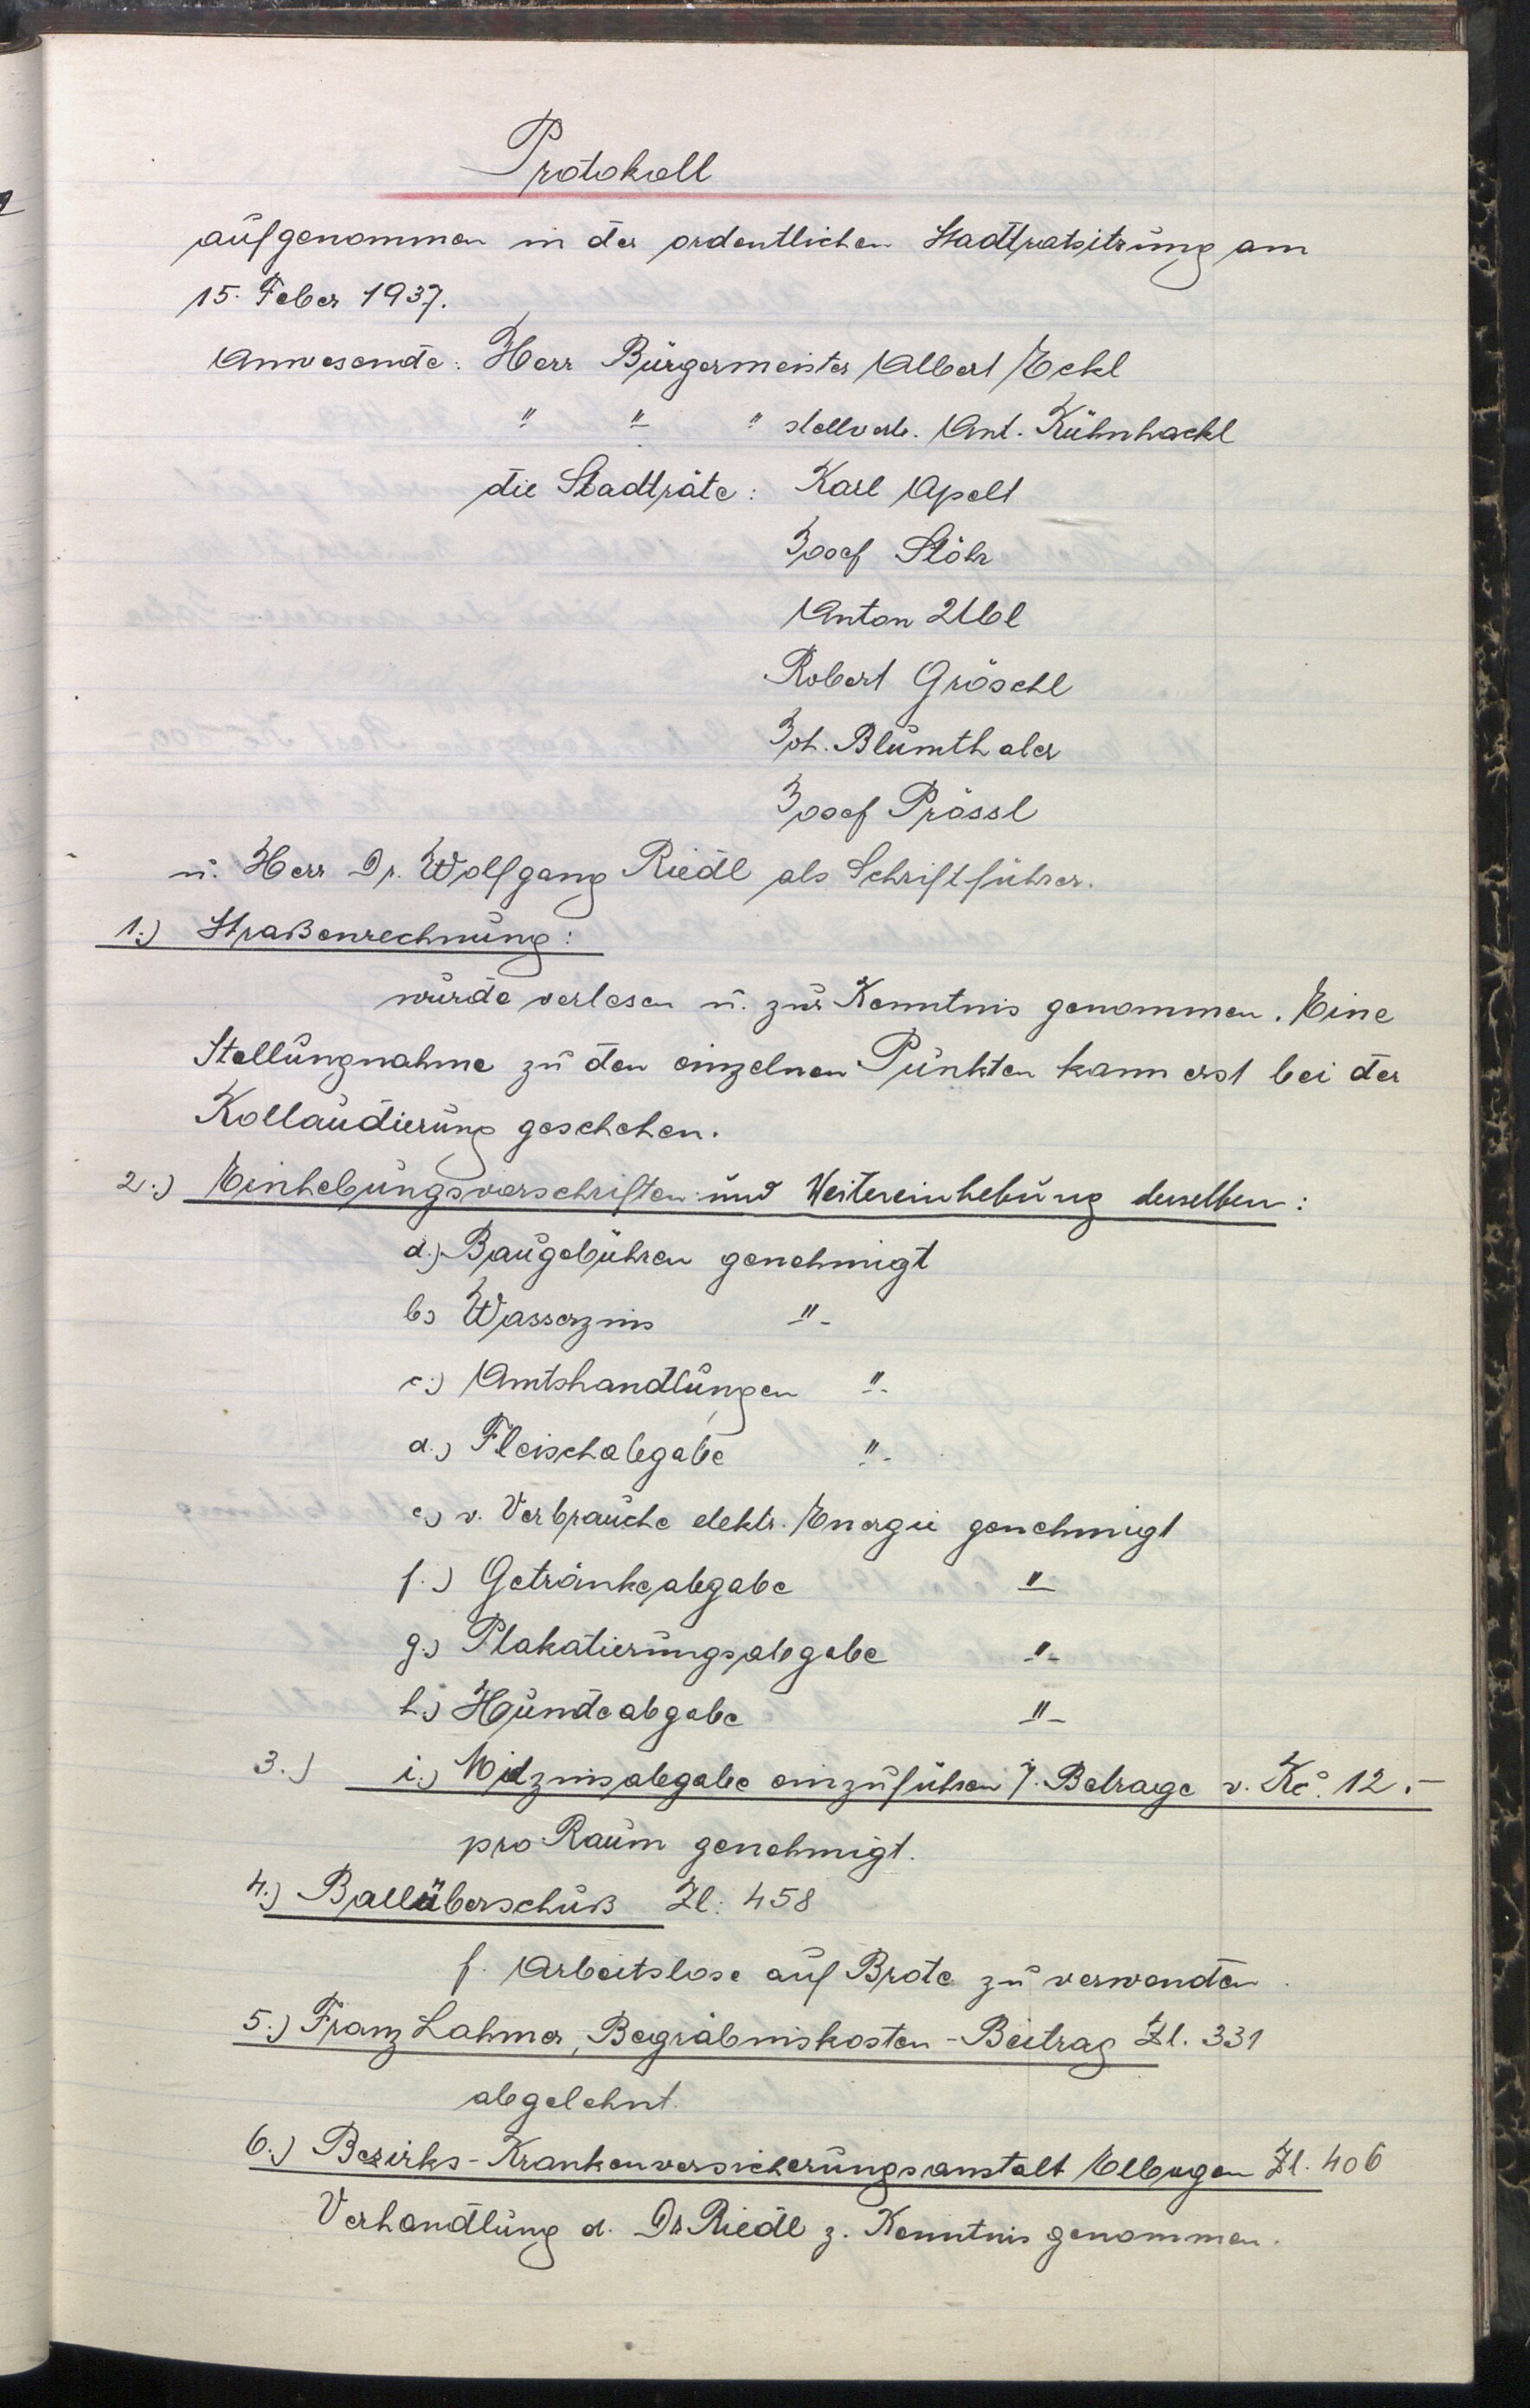 Protokoll
aufgenommen in der ordentlichen Stadtratsitzung am
15. Feber 1937.
Anwesende: Herr Bürgermeister Albert Eckl
" " " stellvertr. Ant. Kühnhackl
die Stadträte: Karl Apelt
Josef Stöhr
Anton Ubl
Robert Gröschl
Joh. Blumthaler
Josef Prössl
u. Herr Dr. Wolfgang Riedl als Schriftführer.
1.) Straßenrechnung:
wurde verlesen u. zur Kenntnis genommen. Eine
Stellungnahme zu den einzelnen Punkten kann erst bei der
Kollaudierung geschehen.
2.) Einhebungsvorschriften und Weitereinhebung derselben:
a.) Baugebühren genehmigt
b.) Wasserzins "-
c.) Amtshandlungen "-
d.) Fleischabgabe "-
e.) v. Verbrauche elektr. Energie genehmigt
f.) Getränkeabgabe "
g.) Plakatierungsabgabe "-
h.) Hundeabgabe "-
3.) i.) Mietzinsabgabe einzuführen i. Betrage v. Kč. 12.-
pro Raum genehmigt.
4.) Ballüberschuß Zl: 458
f. Arbeitslose auf Brote zu verwenden.
5.) Franz Lahmer, Begräbniskosten-Beitrag Zl. 331
abgelehnt.
6.) Bezirks-Krankenversicherungsanstalt Elbogen Zl. 406
Verhandlung d. Dr Riedl z. Kenntnis genommen.